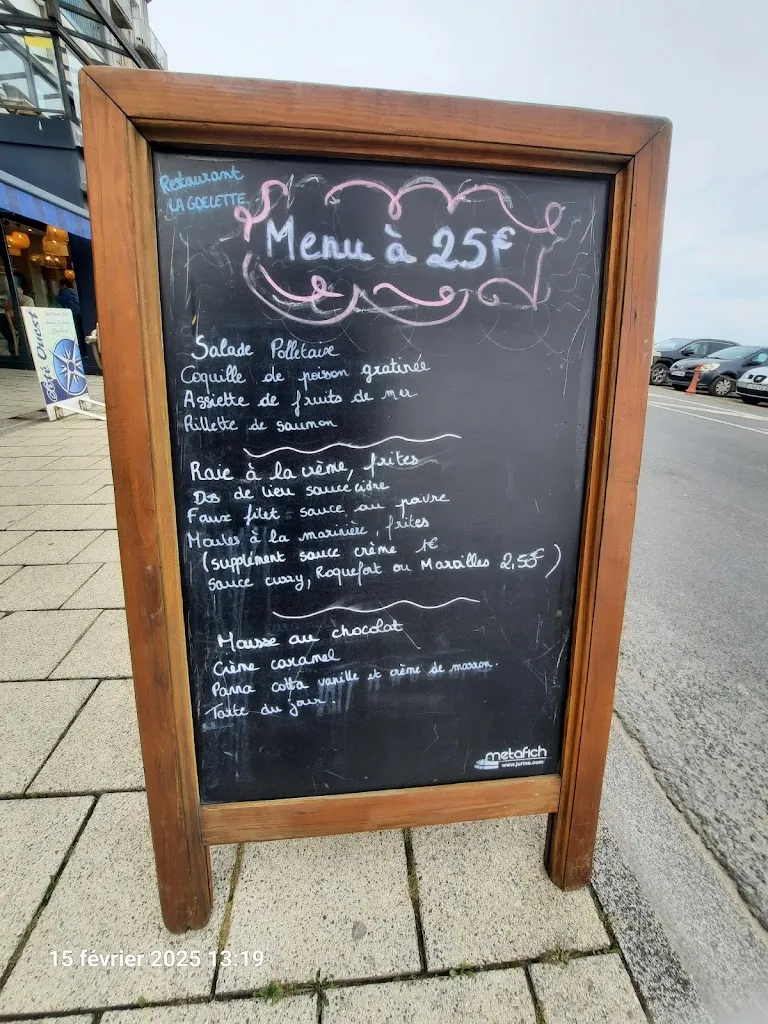 Restaurant
LA GOELETTE
Menu à 25€
Salade Polletaise
Coquille de poisson gratinée
Assiette de fruits de mer
Rillette de saumon
Raie à la crème, frites
Dos de lieu sauce cidre
Faux filet sauce au poivre
Moules à la marinière, frites
(supplément sauce crème 1€
sauce curry, Roquefort ou Maroilles 2,50€)
Mousse au chocolat
Crème caramel
Panna cotta vanille et crème de marron.
Tarte du jour.
metafich
www.jurine.com
Café Ouest
15 février 2025 13:19